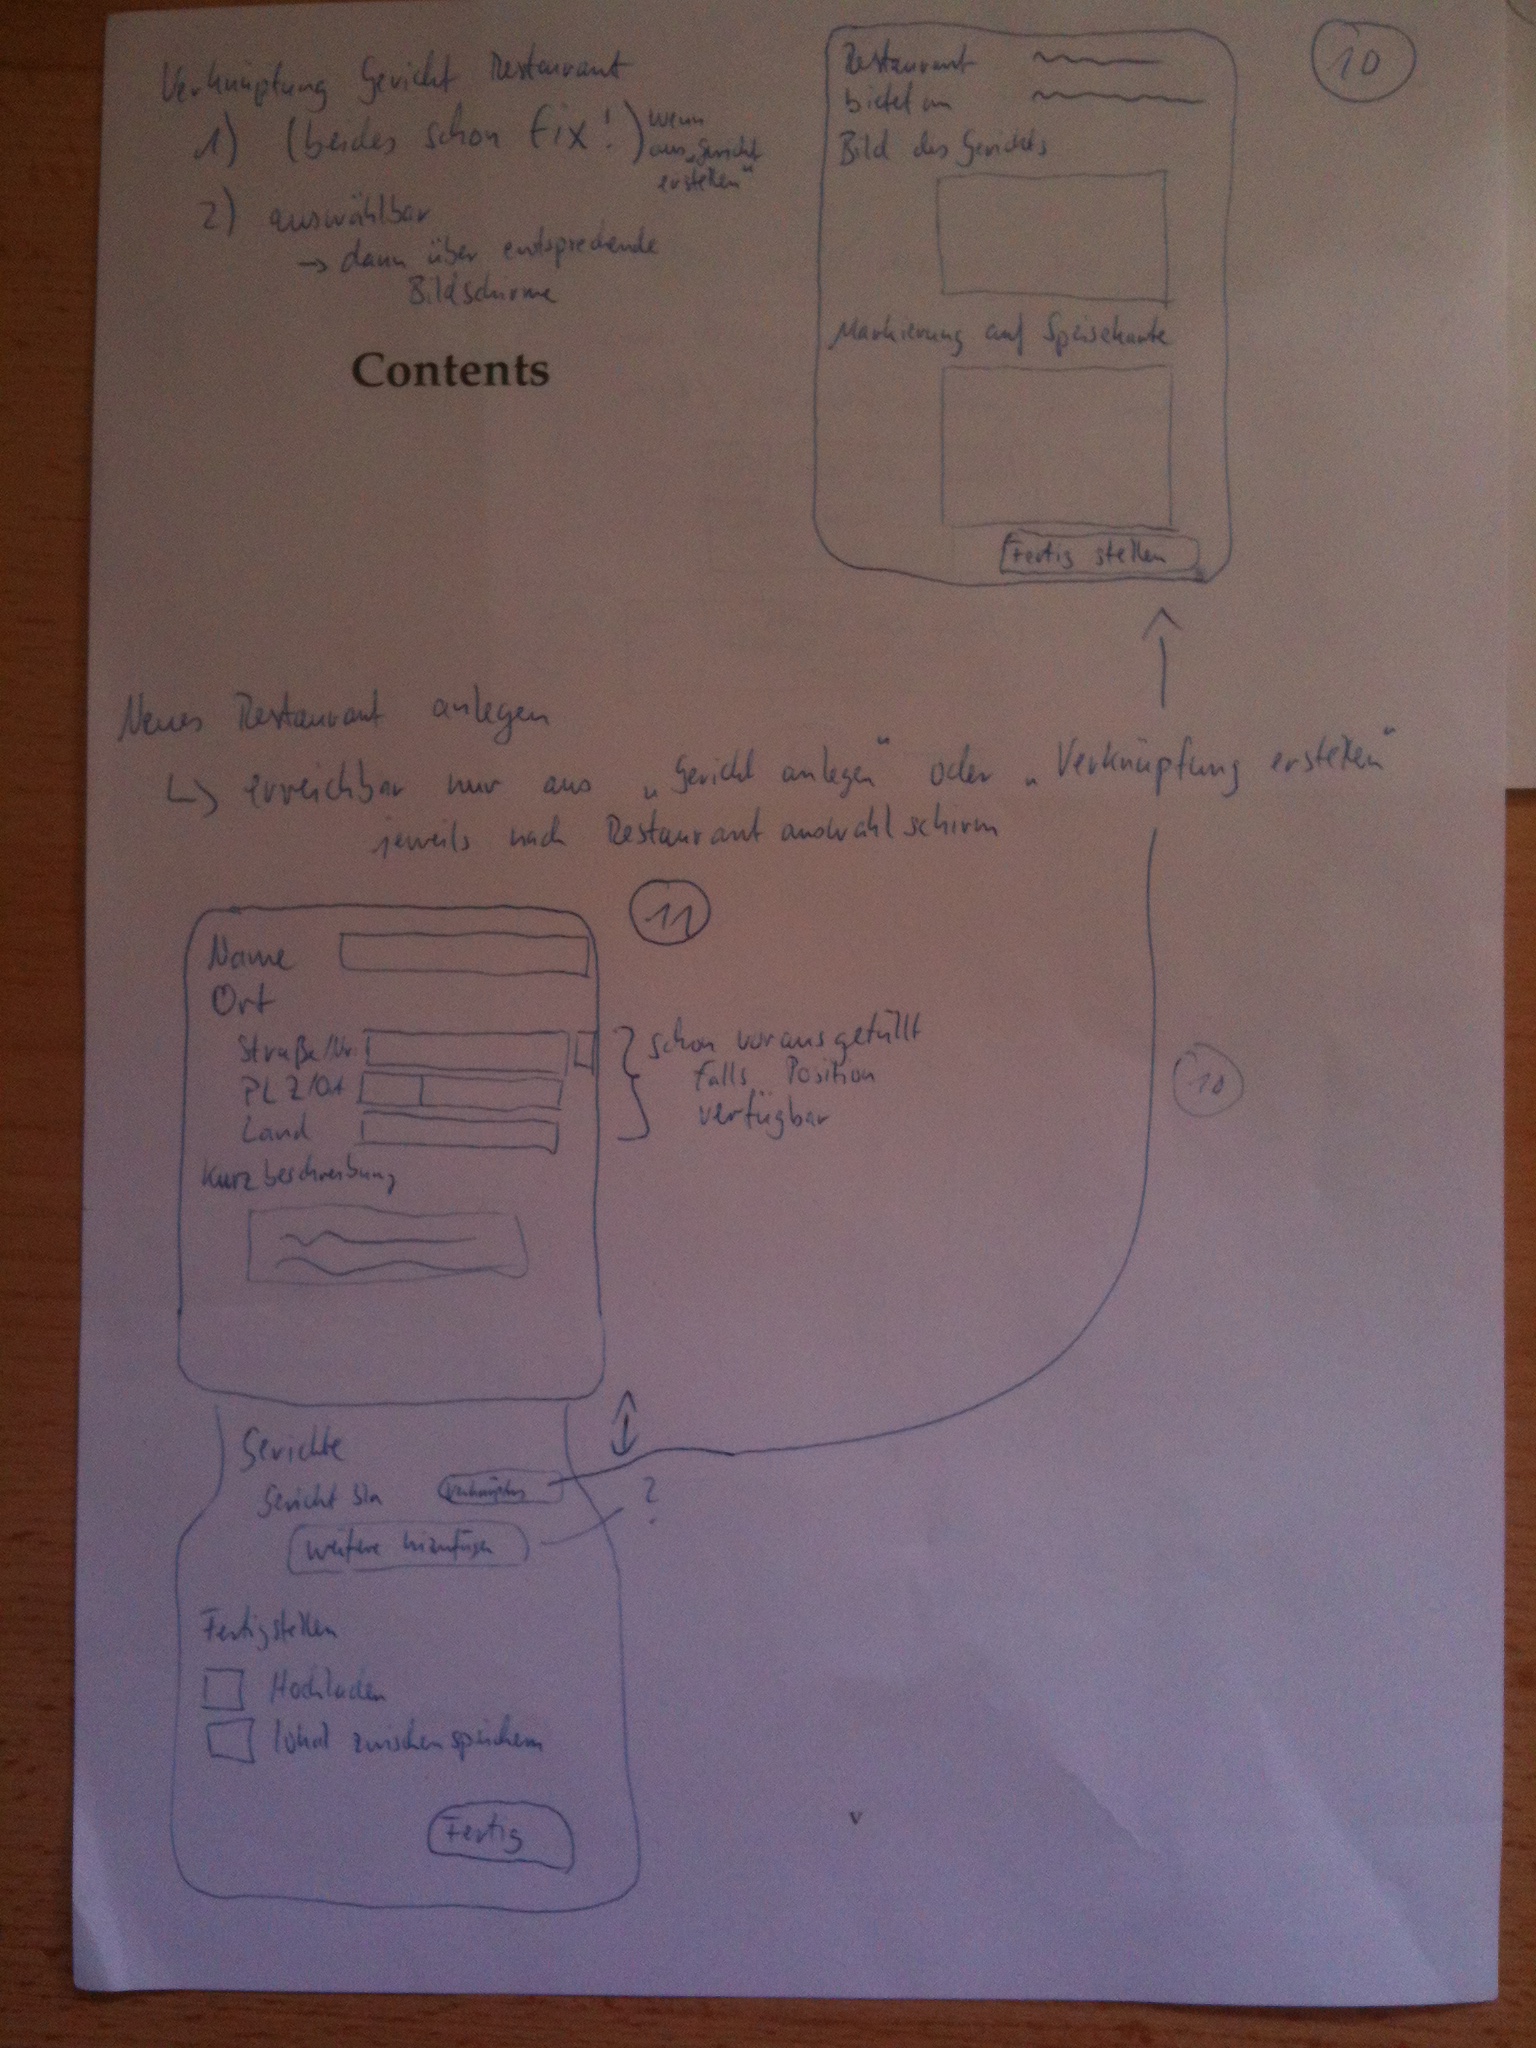 Verknüpfung Gericht Restaurant
1) (beides schon fix!) wenn
aus „Gericht
erstellen"
2) auswählbar
→ dann über entsprechende
Bildschirme
Contents
10
Restaurant
bietet an
Bild des Gerichts
Markierung auf Speisekarte
Fertig stellen
Neues Restaurant anlegen
↳ erreichbar nur aus „Gericht anlegen" oder „Verknüpfung erstellen"
jeweils nach Restaurantauswahlschirm
11
Name
Ort
Straße/Nr.
PLZ/Ort
Land
schon vorausgefüllt
falls Position
verfügbar
10
Kurzbeschreibung
Gerichte
Gericht
?
weitere hinzufügen
Fertigstellen
Hochladen
lokal zwischenspeichern
Fertig
v